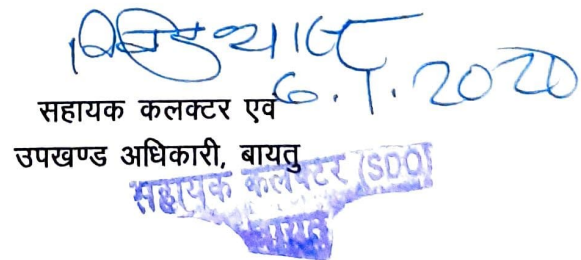 6.1.2020
सहायक कलक्टर एवं
उपखण्ड अधिकारी, बायतु
सहायक कलेक्टर (SDO)
बायतु